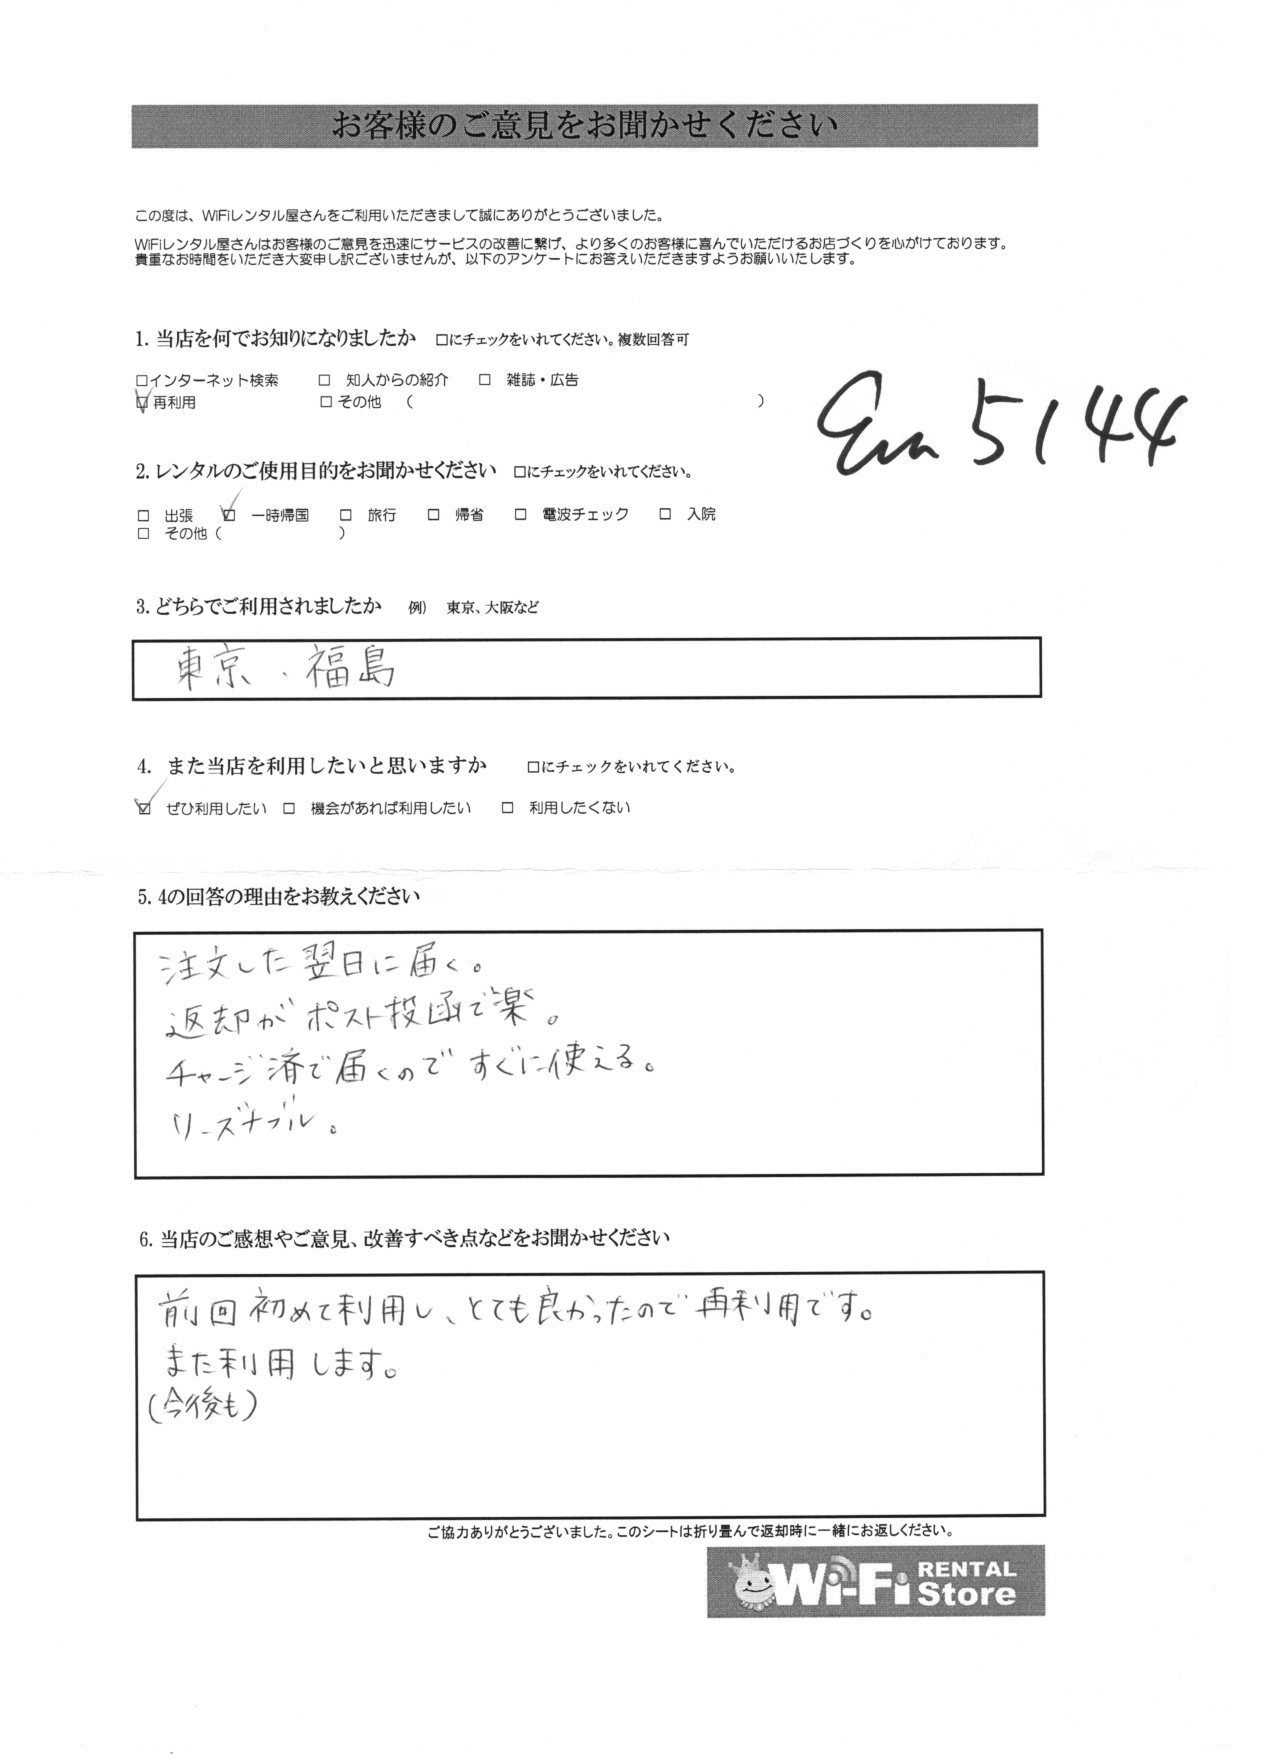 お客様のご意見をお聞かせください
この度は、WiFiレンタル屋さんをご利用いただきまして誠にありがとうございました。
WiFiレンタル屋さんはお客様のご意見を迅速にサービスの改善に繋げ、より多くのお客様に喜んでいただけるお店づくりを心がけております。
貴重なお時間をいただき大変申し訳ございませんが、以下のアンケートにお答えいただきますようお願いいたします。
1. 当店を何でお知りになりましたか □にチェックをいれてください。複数回答可
□インターネット検索 □ 知人からの紹介 □ 雑誌・広告
☑再利用 □その他 ( )
5144
2. レンタルのご使用目的をお聞かせください □にチェックをいれてください。
□ 出張 ☑ 一時帰国 □ 旅行 □ 帰省 □ 電波チェック □ 入院
□ その他 ( )
3. どちらでご利用されましたか 例) 東京、大阪など
東京、福島
4. また当店を利用したいと思いますか □にチェックをいれてください。
☑ ぜひ利用したい □ 機会があれば利用したい □ 利用したくない
5. 4の回答の理由をお教えください
注文した翌日に届く。
返却がポスト投函で楽。
チャージ済で届くのですぐに使える。
リーズナブル。
6. 当店のご感想やご意見、改善すべき点などをお聞かせください
前回初めて利用し、とても良かったので再利用です。
また利用します。
(今後も)
ご協力ありがとうございました。このシートは折り畳んで返却時に一緒にお返しください。
Wi-Fi RENTAL Store